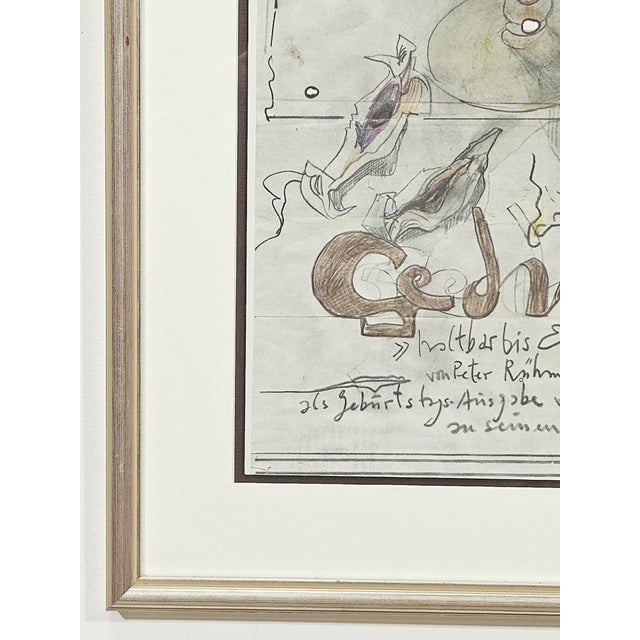 Ged
» haltbar bis E
von Peter Rühm
als Geburtstags-Ausgabe v
zu seinen